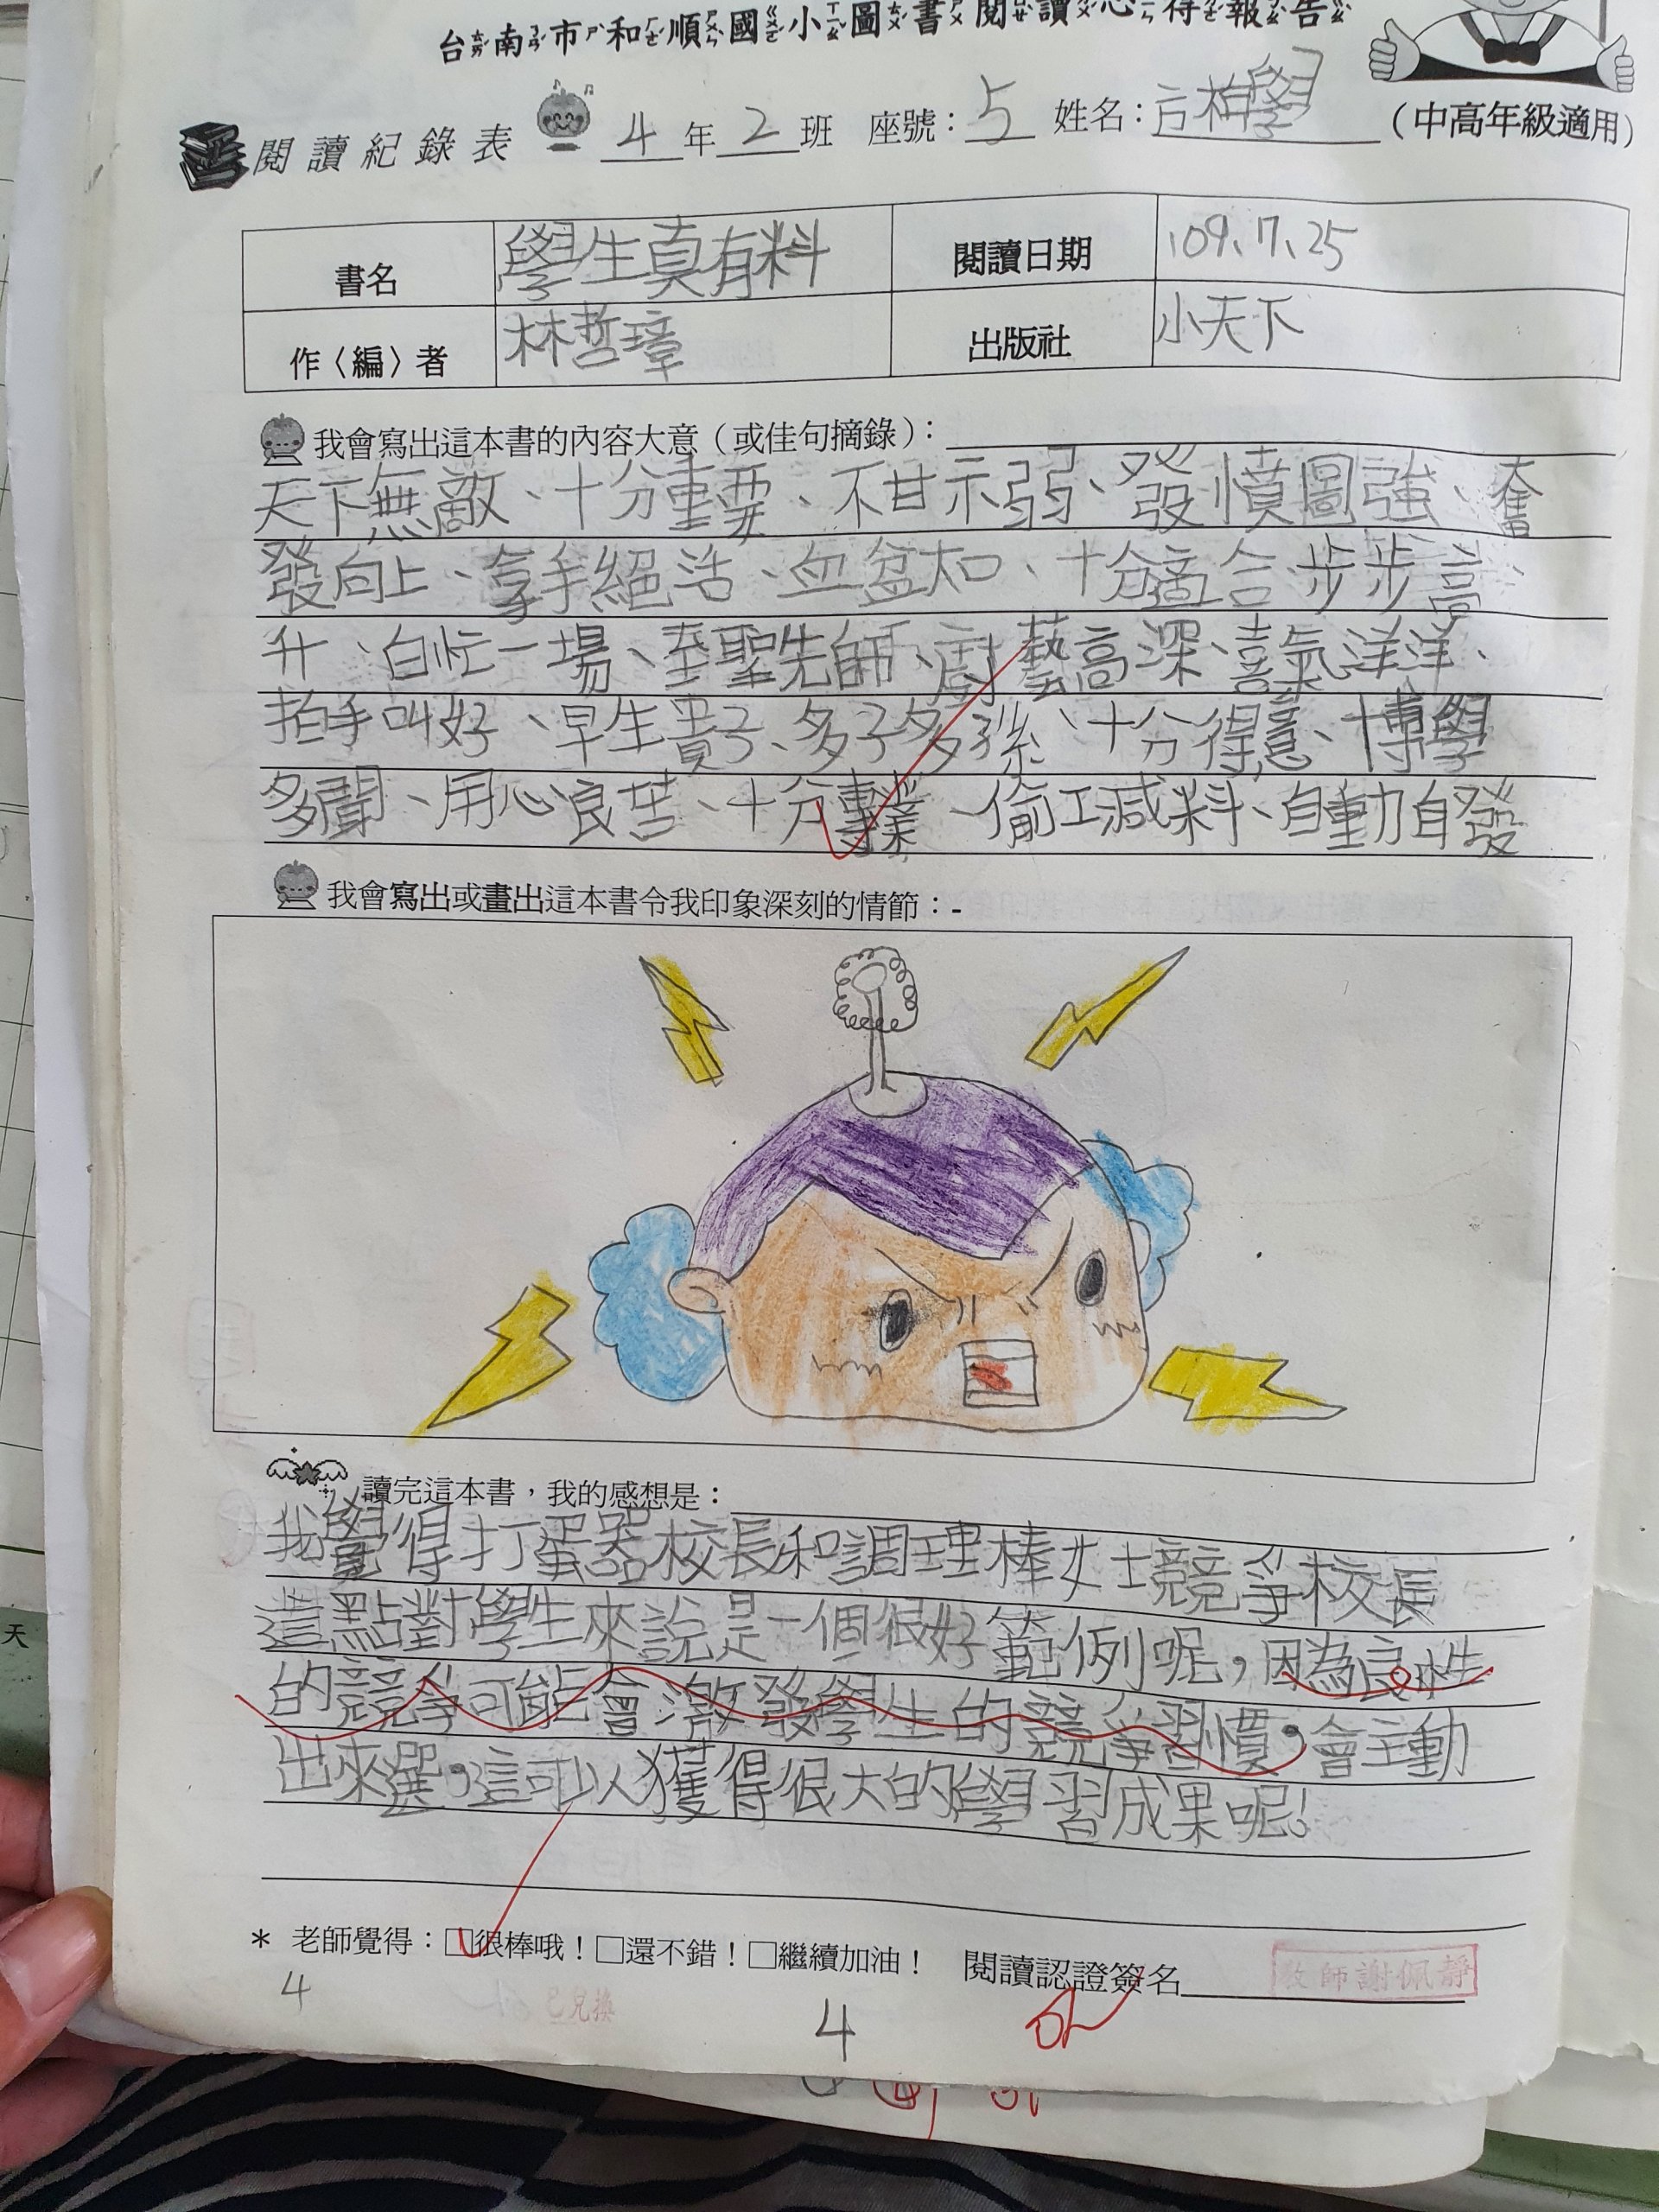 台南市和順國小圖書閱讀心得報告
閱讀紀錄表 4年2班 座號：5 姓名：方柏學 （中高年級適用）
書名 學生真有料 閱讀日期 109、7、25
作〈編〉者 林哲璋 出版社 小天下
我會寫出這本書的內容大意（或佳句摘錄）：
天下無敵、十分重要、不甘示弱、發憤圖強、奮
發向上、拿手絕活、血盆大口、十分適合、步步高
升、白忙一場、至聖先師、廚藝高深、喜氣洋洋、
拍手叫好、早生貴子、多子多孫、十分得意、博學
多聞、用心良苦、十分專業、偷工減料、自動自發
我會寫出或畫出這本書令我印象深刻的情節：
讀完這本書，我的感想是：
我覺得打蛋器校長和調理棒女士競爭校長
這點對學生來說是一個很好範例呢，因為良性
的競爭可能會激發學生的競爭習慣，會主動
出來選，這可以獲得很大的學習成果呢！
* 老師覺得：□很棒哦！□還不錯！□繼續加油！ 閱讀認證簽名 教師謝佩靜
4 已兌換 4 ok
天